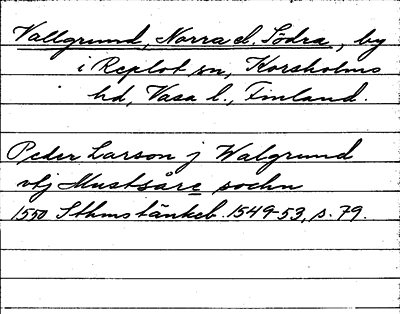 Vallgrund, Norra el. Södra, by
i Replot sn, Korsholms
hd, Vasa l., Finland.
Peder Larson j Walgrund
vtj Mustsåre sochn
1550 Sthms tänkeb. 1549-53, s. 79.